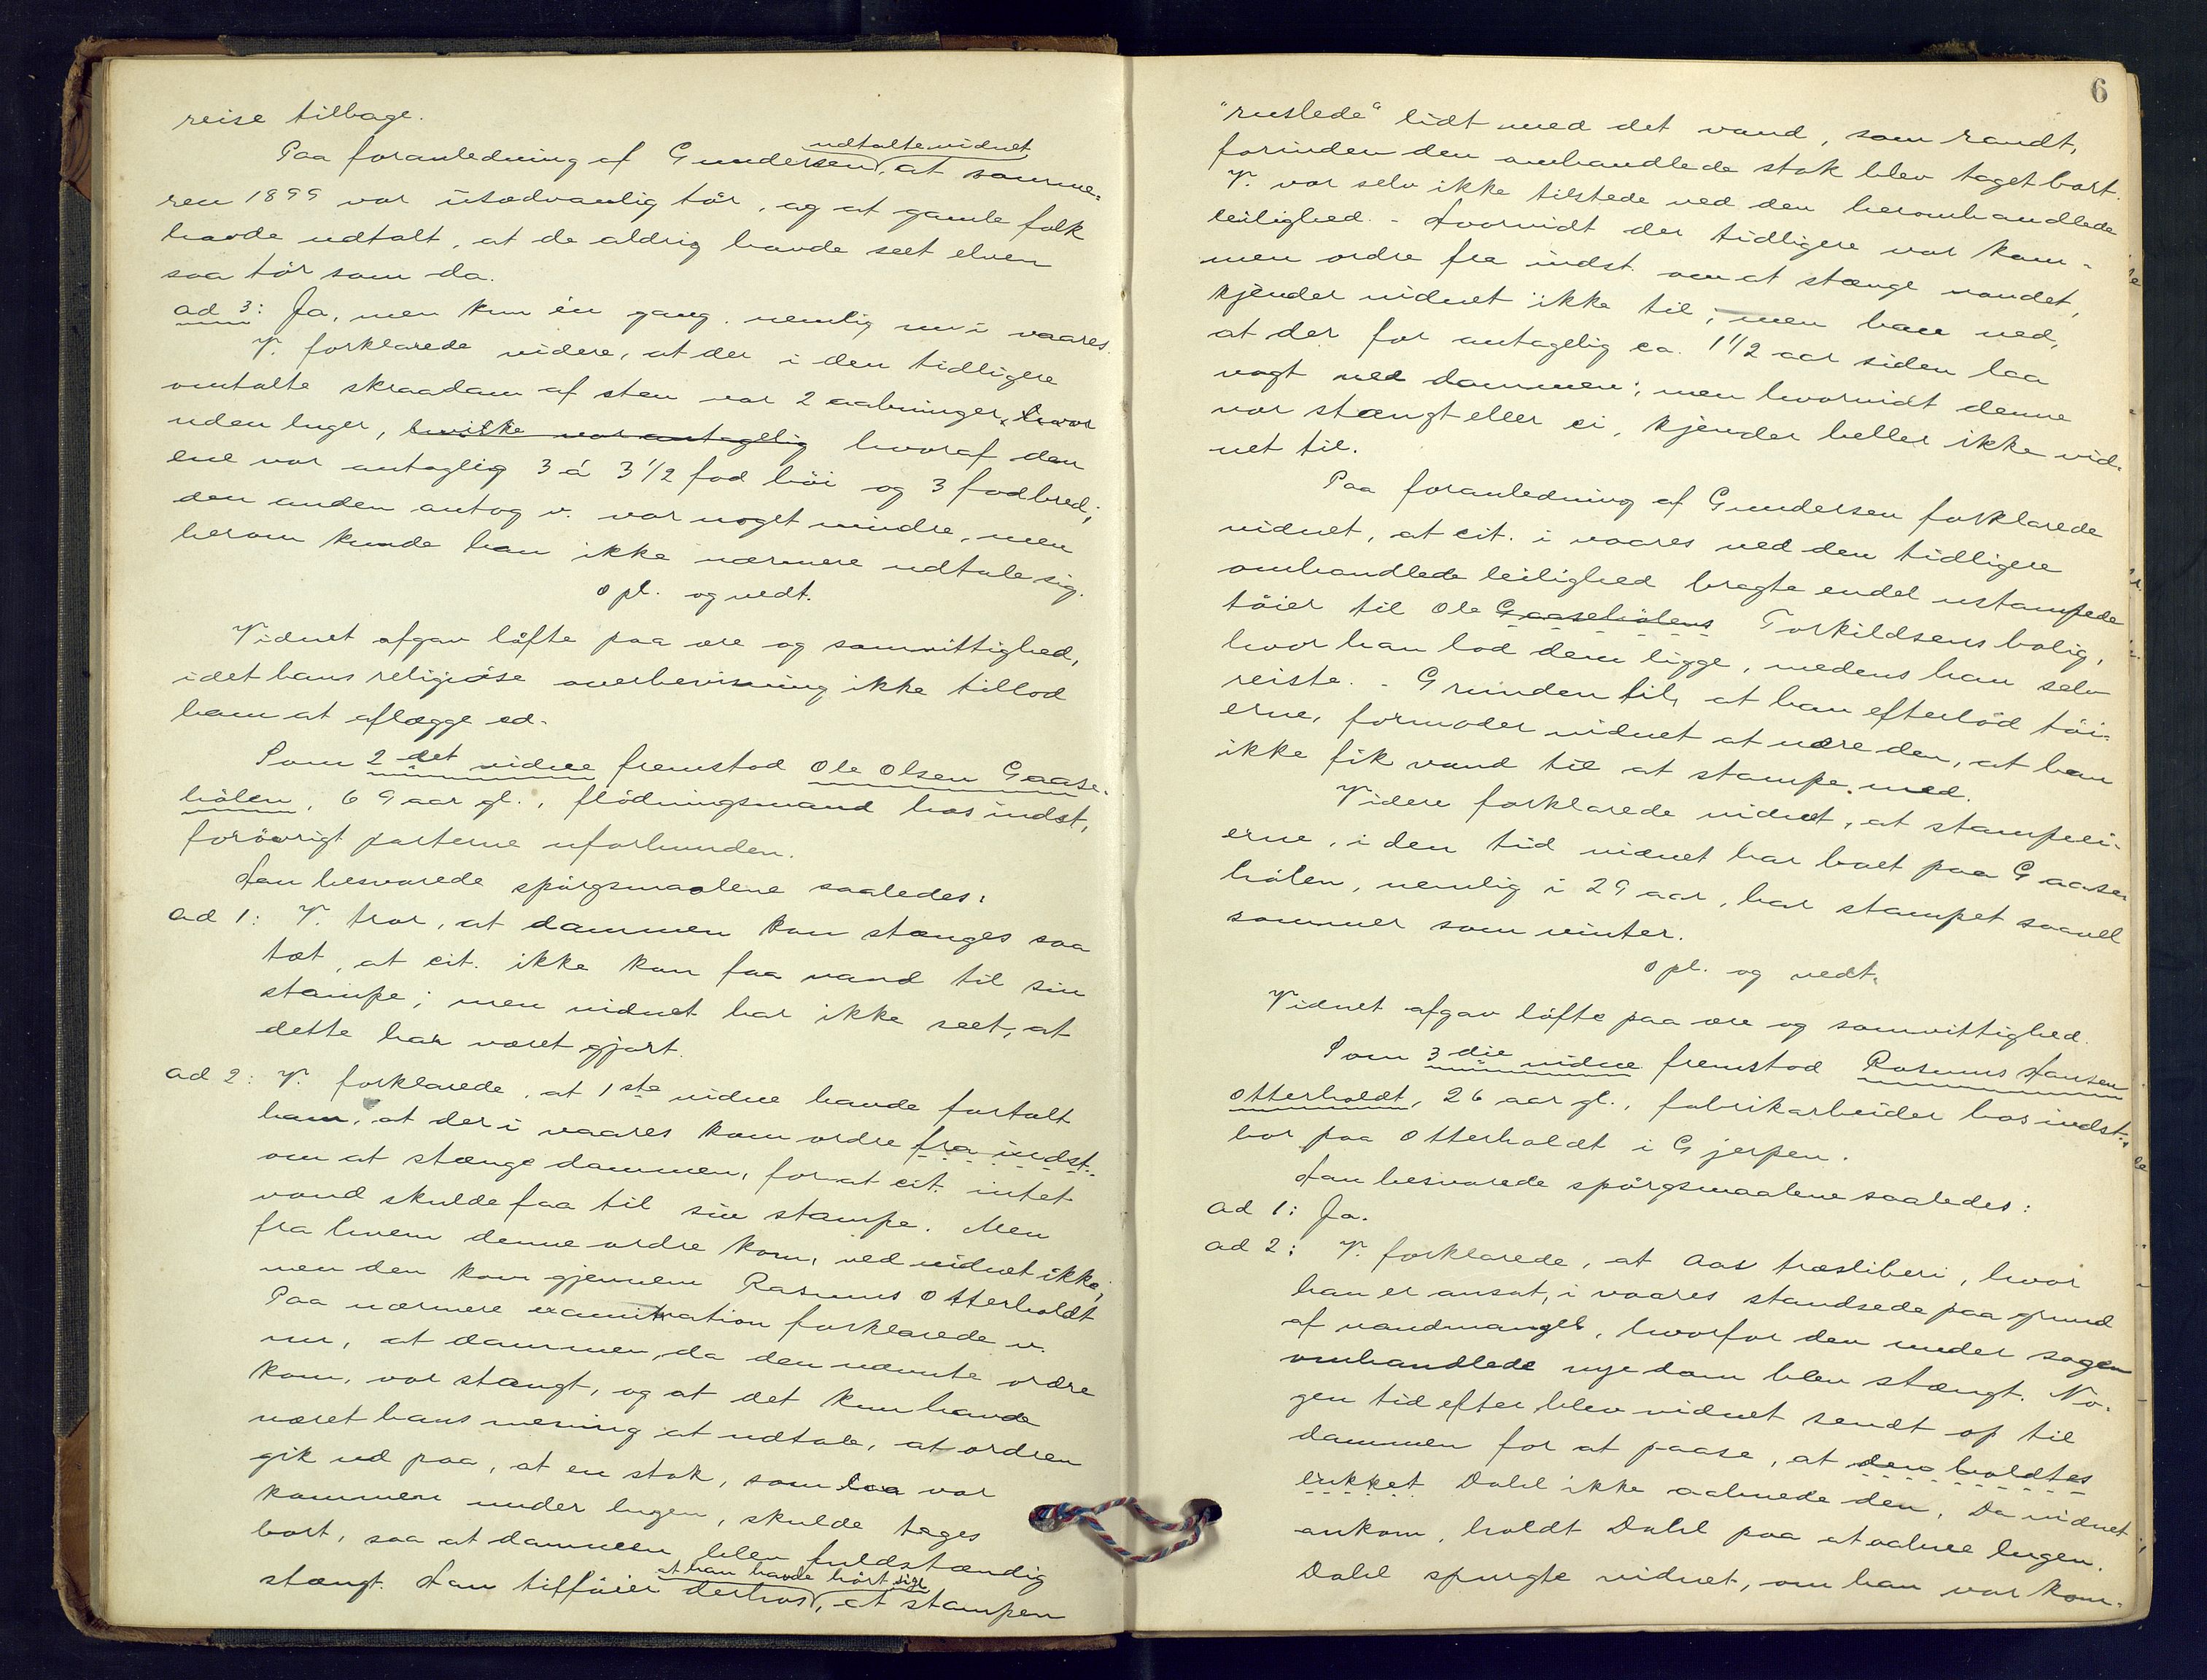 reise tilbage.
Paa foranledning af Gundersen udtalte vidnet, at somme-
ren 1899 var usædvanlig tör, og at gamle folk
havde udtalt, at de aldrig havde seet elven
saa tör som da.
ad 3: Ja, men kun én gang, nemlig nu i vaares.
V. forklarede videre, at der i den tidligere
omtalte skraadam af sten var 2 aabninger, hvor
uden luger, hvilke var antagelig hvoraf den
ene var antaglig 3 á 3 1/2 fod höi og 3 fod bred;
den anden antog v. var noget mindre, men
herom kunde han ikke nærmere udtale sig.
Opl. og vedt.
Vidnet afgav löfte paa ære og samvittighed,
idet hans religiöse overbevisning ikke tillod
ham at aflægge ed.
Som 2det vidne fremstod Ole Olsen Gaase-
hölen, 69 aar gl., flödningsmand hos indst.,
forövrigt parterne uforbunden.
Han besvarede spörgsmaalene saaledes:
ad 1: V. tror, at dammen kan stænges saa
tæt, at cit. ikke kan faa vand til sin
stampe; men vidnet har ikke seet, at
dette har været gjort.
ad 2: V. forklarede, at 1ste vidne havde fortalt
ham, at der i vaares kom ordre fra indst.
om at stænge dammen, forat cit. intet
vand skulde faa til sin stampe. Men
fra hvem denne ordre kom, ved vidnet ikke;
men den kom gjennem Rasmus Otterholdt
Paa nærmere examination forklarede v.
nu, at dammen, da den nævnte ordre
kom, var stængt, og at det kun havde
været hans mening at udtale, at ordren
gik ud paa, at en stok, som laa var
kommen under lugen, skulde tages
bort, saa at dammen blev fuldstændig
stængt. Han tilföier derhos, at han havde hört sige, at stampen
6
"ruslede" lidt med det vand, som randt,
forinden den omhandlede stok blev taget bort.
V. var selv ikke tilstede ved den heromhandlede
leilighed. - Hvorvidt der tidligere var kom-
men ordre fra indst. om at stænge vandet,
kjender vidnet ikke til; men han ved,
at der for antagelig ca. 1 1/2 aar siden laa
vagt ved dammen; men hvorvidt denne
var stængt eller ei, kjender heller ikke vid-
net til.
Paa foranledning af Gundersen forklarede
vidnet, at cit. i vaares ved den tidligere
omhandlede leilighed bragte endel ustampede
töier til Ole Gaasehölens Torkildsens bolig,
hvor han lod dem ligge, medens han selv
reiste. - Grunden til, at han efterlod töi-
erne, formoder vidnet at være den, at han
ikke fik vand til at stampe med.
Videre forklarede vidnet, at stampeei-
erne, i den tid vidnet har boet paa Gaase-
hölen, nemlig i 29 aar, har stampet saavel
sommer som vinter.
Opl. og vedt.
Vidnet afgav löfte paa ære og samvittighed.
Som 3die vidne fremstod Rasmus Hansen
Otterholdt, 26 aar gl., fabrikarbeider hos indst.,
bor paa Otterholdt i Gjerpen.
Han besvarede spörgsmaalene saaledes:
ad 1: Ja.
ad 2: V. forklarede, at Aas træsliberi, hvor
han er ansat, i vaares standsede paa grund
af vandmangel, hvorfor den under sagen
omhandlede nye dam blev stængt. No-
gen tid efter blev vidnet sendt op til
dammen for at paase, at den holdtes
lukket Dahl ikke aabnede den. Da vidnet
ankom, holdt Dahl paa at aabne lugen.
Dahl spurgte vidnet, om han var kom-